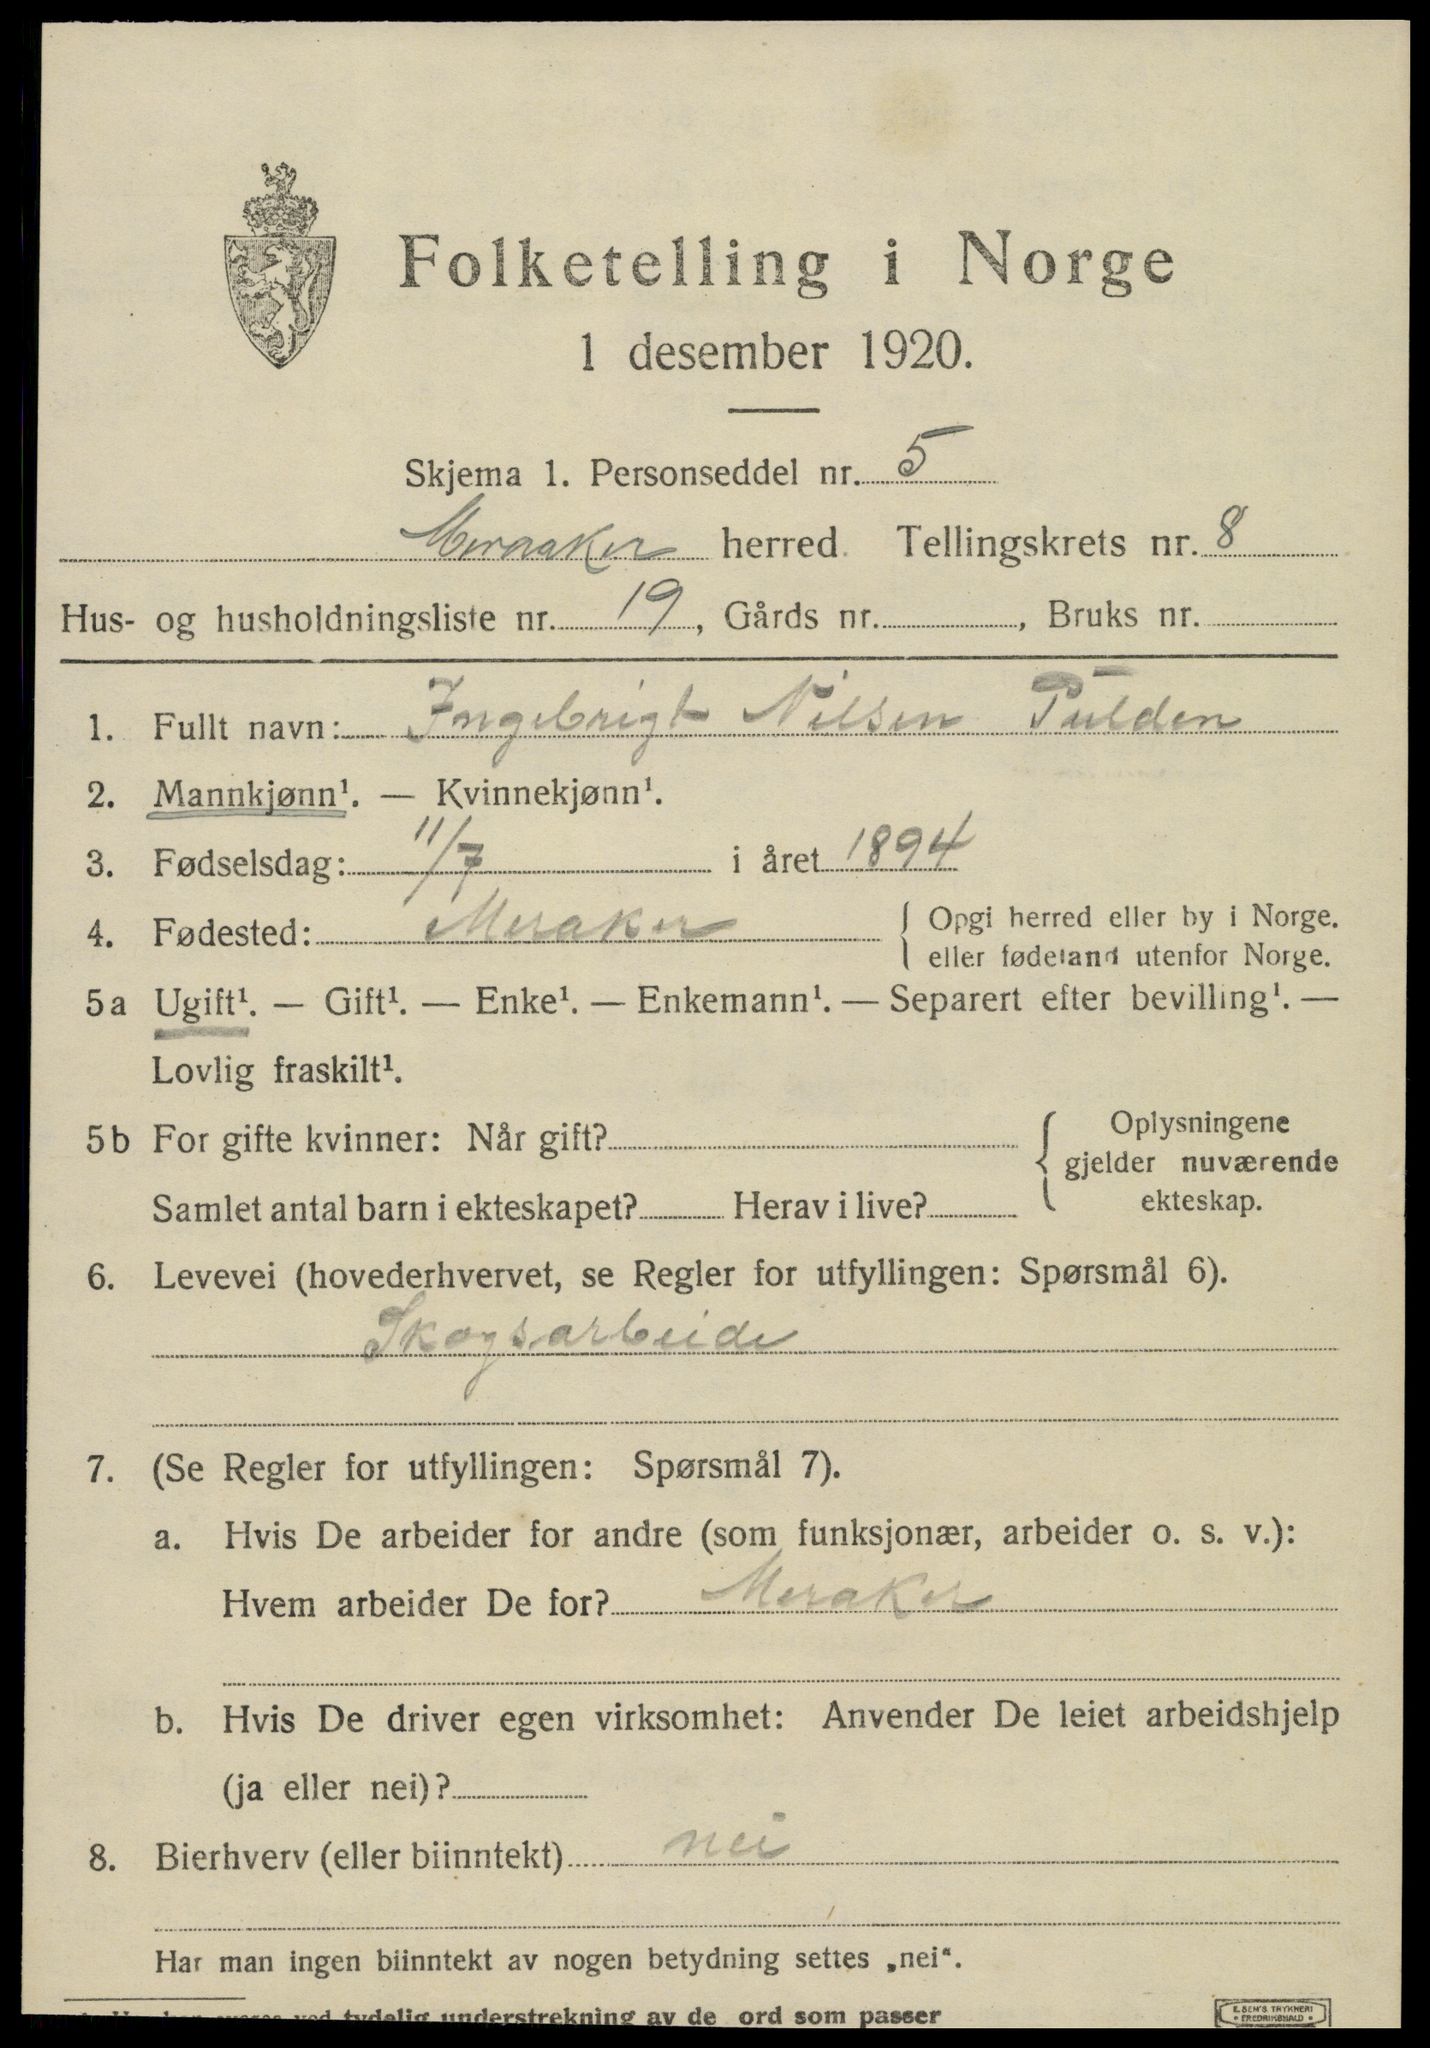 Folketelling i Norge
1 desember 1920.
Skjema 1. Personseddel nr. 5
Meraaker herred. Tellingskrets nr. 8
Hus- og husholdningsliste nr. 19, Gårds nr. , Bruks nr.
1. Fullt navn: Ingebrigt Nilsen Tulden
2. Mannkjønn¹. — Kvinnekjønn¹.
3. Fødselsdag: 11/7 i året 1894
4. Fødested: Meraker { Opgi herred eller by i Norge.
eller fødeland utenfor Norge.
5a Ugift¹. — Gift¹. — Enke¹. — Enkemann¹. — Separert efter bevilling¹. —
Lovlig fraskilt¹.
5b For gifte kvinner: Når gift? { Oplysningene
gjelder nuværende
Samlet antal barn i ekteskapet? Herav i live? ekteskap.
6. Levevei (hovederhvervet, se Regler for utfyllingen: Spørsmål 6).
Skogsarbeide
7. (Se Regler for utfyllingen: Spørsmål 7).
a. Hvis De arbeider for andre (som funksjonær, arbeider o. s. v.):
Hvem arbeider De for? Meraker
b. Hvis De driver egen virksomhet: Anvender De leiet arbeidshjelp
(ja eller nei)?
8. Bierhverv (eller biinntekt) nei
Har man ingen biinntekt av nogen betydning settes „nei“.
ved tydelig understrekning av de ord som passer
E. SEM'S TRYKKERI
FREDRIKSHALD